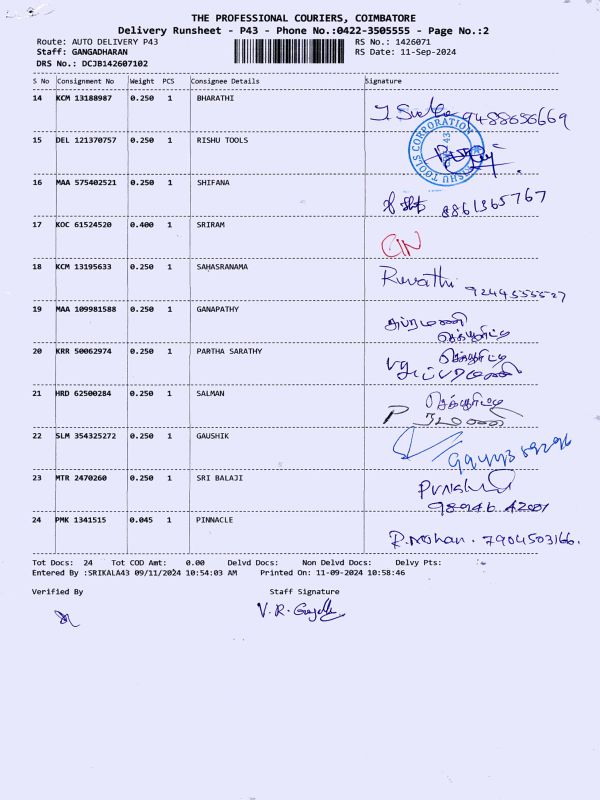 THE PROFESSIONAL COURIERS, COIMBATORE
Delivery Runsheet - P43 - Phone No.:0422-3505555 - Page No.:2
Route: AUTO DELIVERY P43 RS No.: 1426071
Staff: GANGADHARAN RS Date: 11-Sep-2024
DRS No.: DCJB142607102
S No Consignment No Weight PCS Consignee Details Signature
14 KCM 13188987 0.250 1 BHARATHI
15 DEL 121370757 0.250 1 RISHU TOOLS
RISHU TOOLS CORPORATION
16 MAA 575402521 0.250 1 SHIFANA 8861365767
17 KOC 61524520 0.400 1 SRIRAM
18 KCM 13195633 0.250 1 SAHASRANAMA Revathi
19 MAA 109981588 0.250 1 GANAPATHY
20 KRR 50062974 0.250 1 PARTHA SARATHY
21 HRD 62500284 0.250 1 SALMAN
22 SLM 354325272 0.250 1 GAUSHIK
23 MTR 2470260 0.250 1 SRI BALAJI
24 PMK 1341515 0.045 1 PINNACLE 7904503166.
Tot Docs: 24 Tot COD Amt: 0.00 Delvd Docs: Non Delvd Docs: Delvy Pts:
Entered By :SRIKALA43 09/11/2024 10:54:03 AM Printed On: 11-09-2024 10:58:46
Verified By Staff Signature